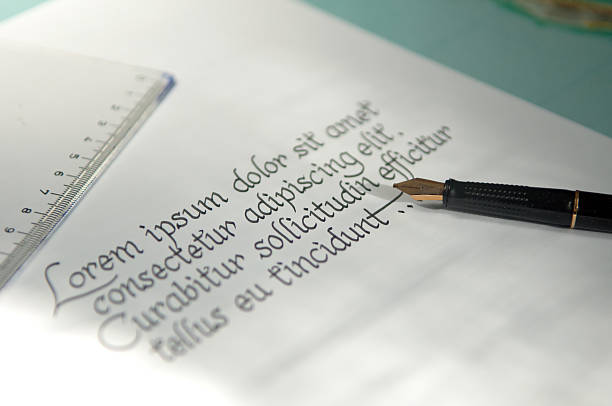 Lorem ipsum dolor sit amet
consectetur adipiscing elit.
Curabitur sollicitudin efficitur
tellus eu tincidunt
8
7
6
5
4
3
2